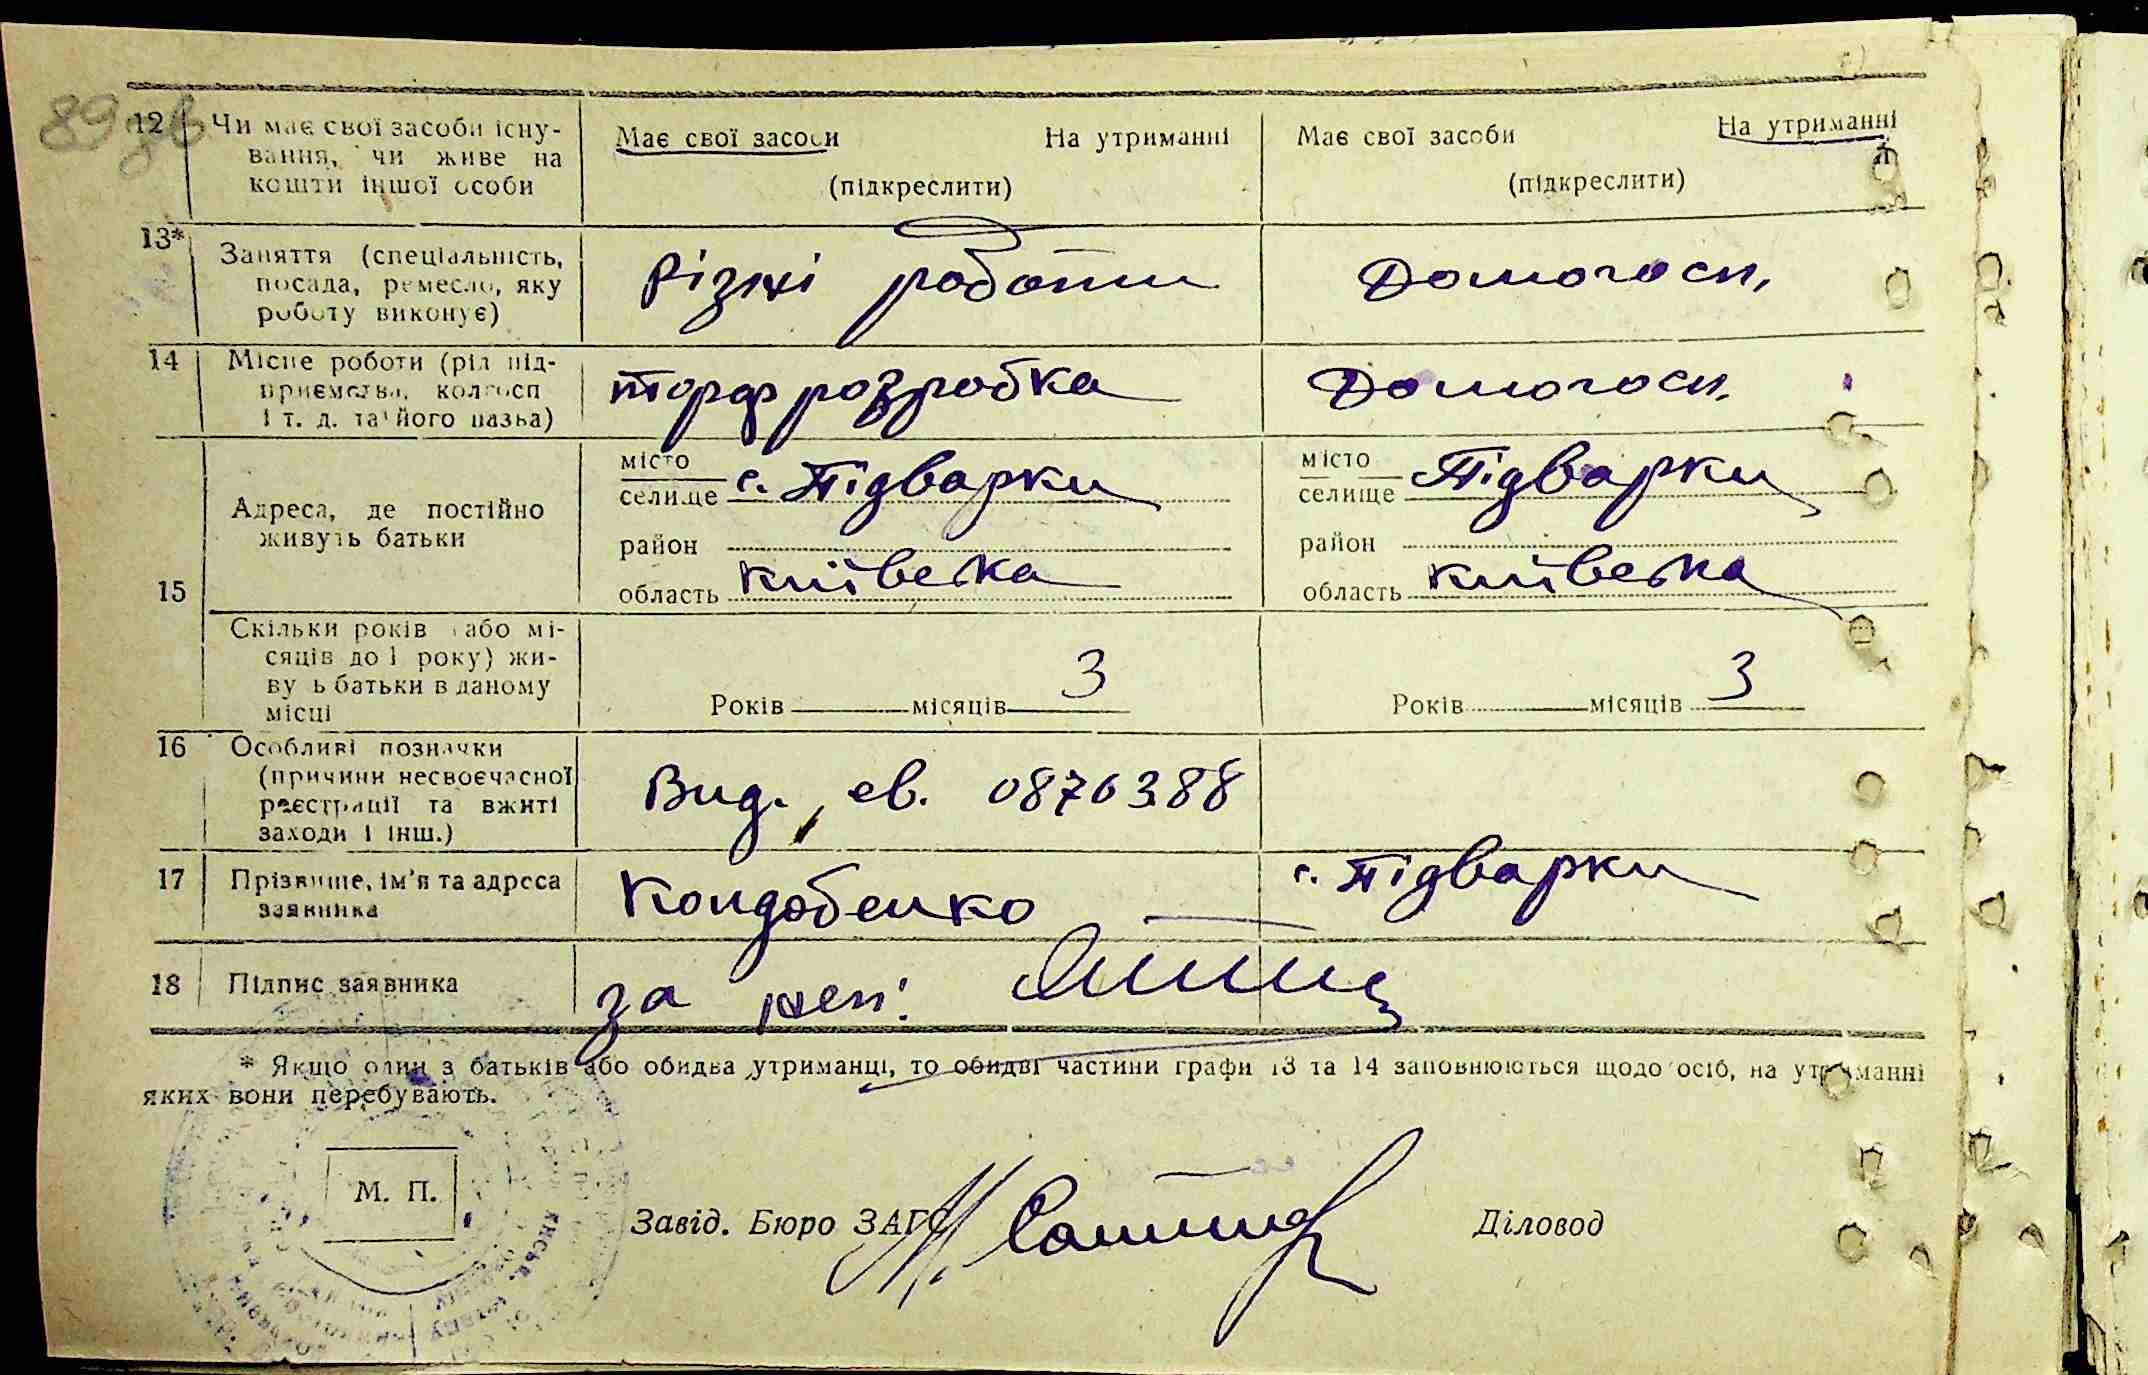 89 зв
12 Чи має свої засоби існу-
вання, чи живе на
кошти іншої особи
Має свої засоби На утриманні
(підкреслити)
Має свої засоби На утриманні
(підкреслити)
13* Заняття (спеціальність,
посада, ремесло, яку
роботу виконує)
Різні роботи
Домогосп,
14 Місце роботи (рід під-
приємства, колгосп
і т. д. та його назва)
торфрозробка
Домогосп.
15
Адреса, де постійно
живуть батьки
місто
селище с. Підварки
район
область Київська
місто
селище Підварки
район
область Київська
Скільки років або мі-
сяців до 1 року) жи-
вуть батьки в даному
місці
Років місяців 3
Років місяців 3
16 Особливі позначки
(причини несвоєчасної
реєстрації та вжиті
заходи і інш.)
Вид. св. 0876388
17 Прізвище, ім'я та адреса
заявника
Кондобенко с. Підварки
18 Підпис заявника
за неп:
* Якщо один з батьків або обидва утриманці, то обидві частини графи 13 та 14 заповнюються щодо осіб, на утриманні
яких вони перебувають.
М. П.
Завід. Бюро ЗАГС
Діловод